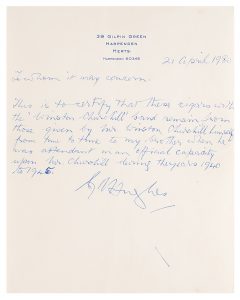 29 GILPIN GREEN
HARPENDEN
HERTS
HARPENDEN 60348
21 April 1980
To whom it may concern.
This is to certify that these cigars with
the 'Winston Churchill' band remain from
those given by Sir Winston Churchill himself
from time to time to my brother when he
was attendant in an official capacity
upon Sir Churchill during the years 1940
to 1945.
Hughes